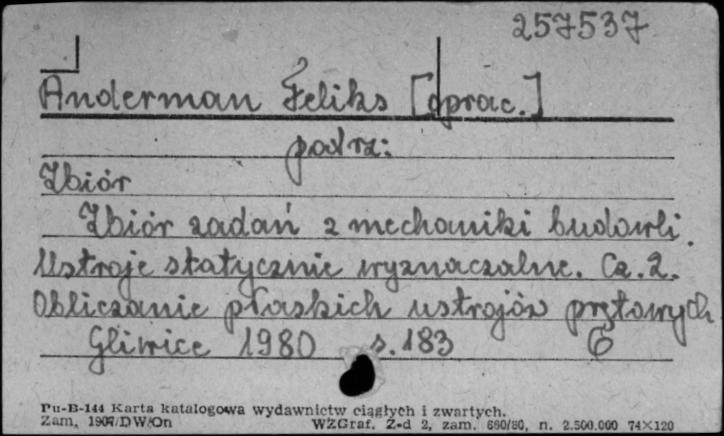 257537
Anderman Feliks [oprac.]
podrz:
Zbiór
Zbiór zadań z mechaniki budowli.
Ustroje statycznie wyznaczalne. Cz. 2.
Obliczanie płaskich ustrojów prętowych
Gliwice 1980 s. 183 6
Pu-B-144 Karta katalogowa wydawnictw ciągłych i zwartych.
Zam. 1907/DW/On WZGraf. Z-d 2, zam. 680/80, n. 2.500.000 74×120